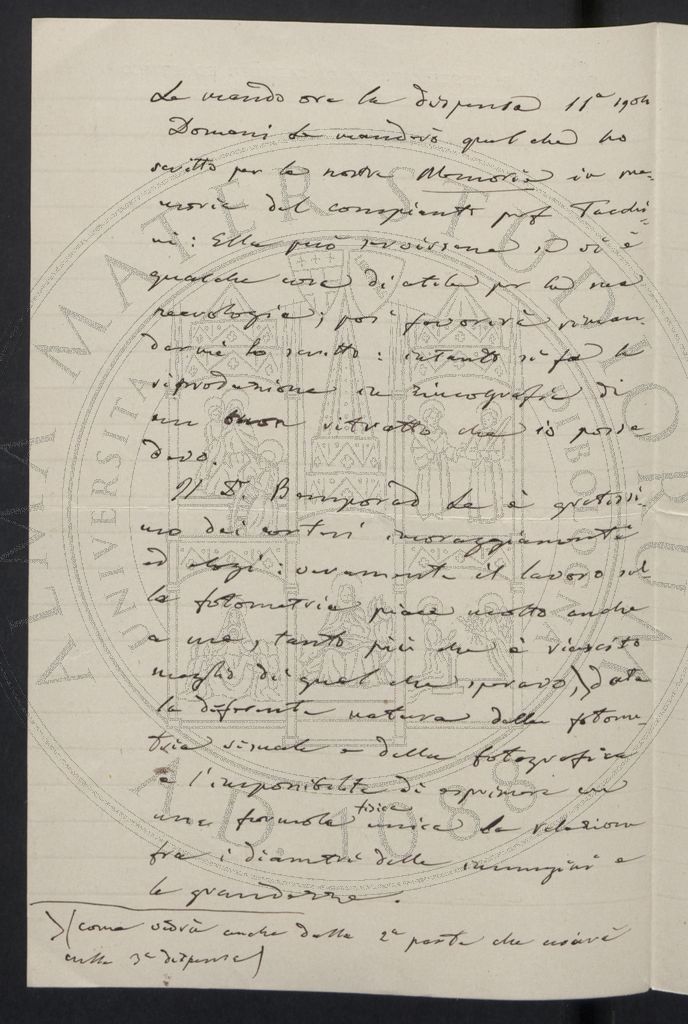 Le mando ora la dispensa 11ª 1904
Domani Le manderò quel che ho
scritto per le nostre Memorie in me-
moria del compianto prof Tacchi-
ni: Ella può servirsene se vi è
qualche cosa di utile per la sua
necrologia; poi favorirà riman-
darmi lo scritto: intanto si fa la
riproduzione in zincografia di
un buon ritratto che io posse
devo.
Il Dr. Bemporad Le è gratissi-
mo dei cortesi incoraggiamenti
ed elogi: veramente il lavoro sul
la fotometria piace molto anche
a me, tanto più che è riuscito
meglio di quel che speravo, data
la differente natura della fotome-
tria visuale e della fotografica
e l'impossibilità di esprimere in
una formola fisica unica la relazione
fra i diametri delle immagini e
le grandezze.
(come vedrà anche dalla 2ª parte che uscirà
nella 3ª dispensa)
ALMA MATER STUDIORUM
UNIVERSITA DI BOLOGNA
A.D. 1088